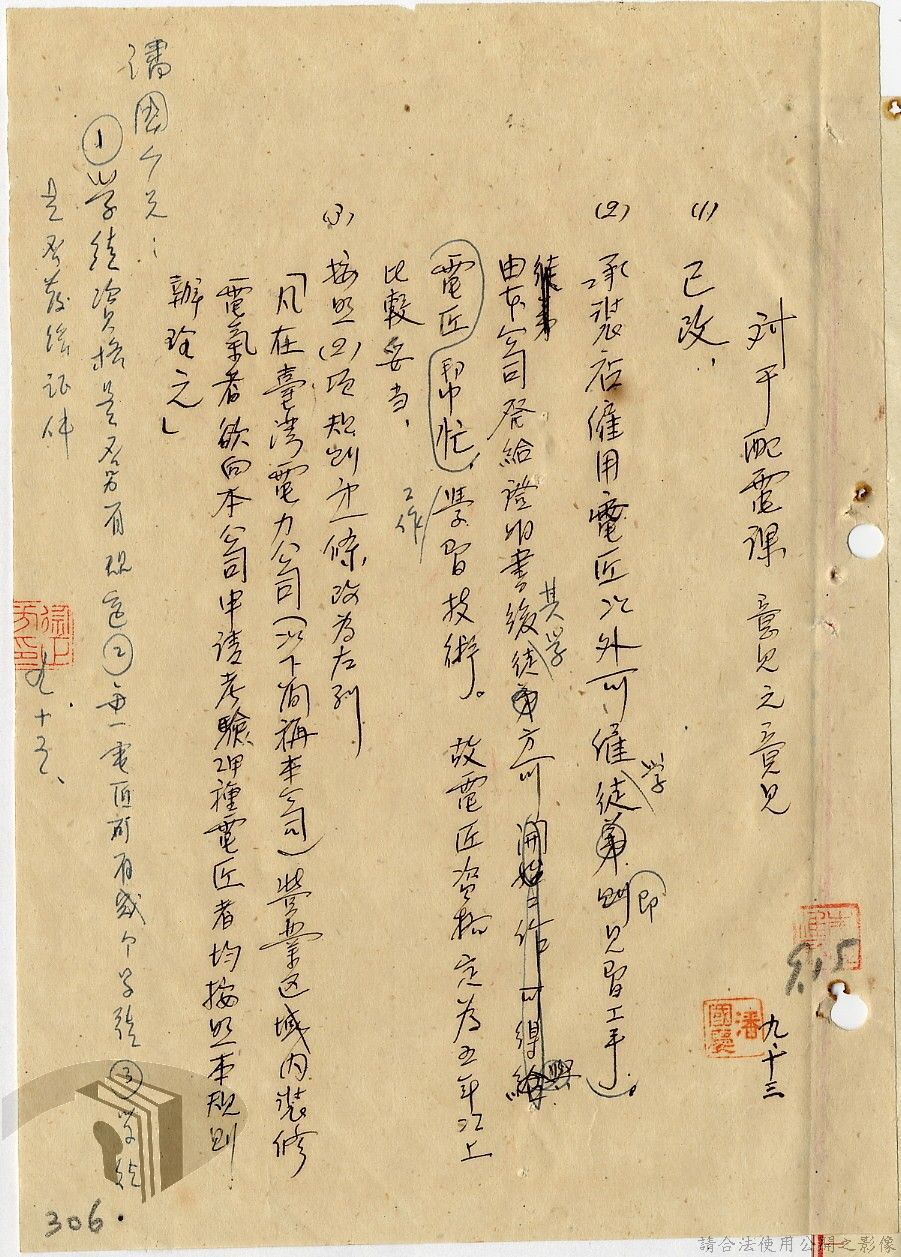 对于配電課意見之意見
九.十三
潘國慶
9.15
(1) 已改，
(2) 承裝店僱用電匠以外可僱學徒（即見習工手）。
由本公司發給證明書後其學徒方可與
電匠幫忙工作，學習技術。故電匠資格定為五年以上
比較妥当，
(3) 按照(2)項規則第一條，改為左列
「凡在臺灣電力公司（以下簡稱本公司）營業区域内裝修
電氣者欲向本公司申請考驗評種電匠者均按照本規則
辦理之」
潘國慶兄：
① 學徒資格是否另有規定 ② 每一電匠可有幾个学徒 ③ 学徒
是否發給証件
九.十三、
306.
請合法使用公開之影像